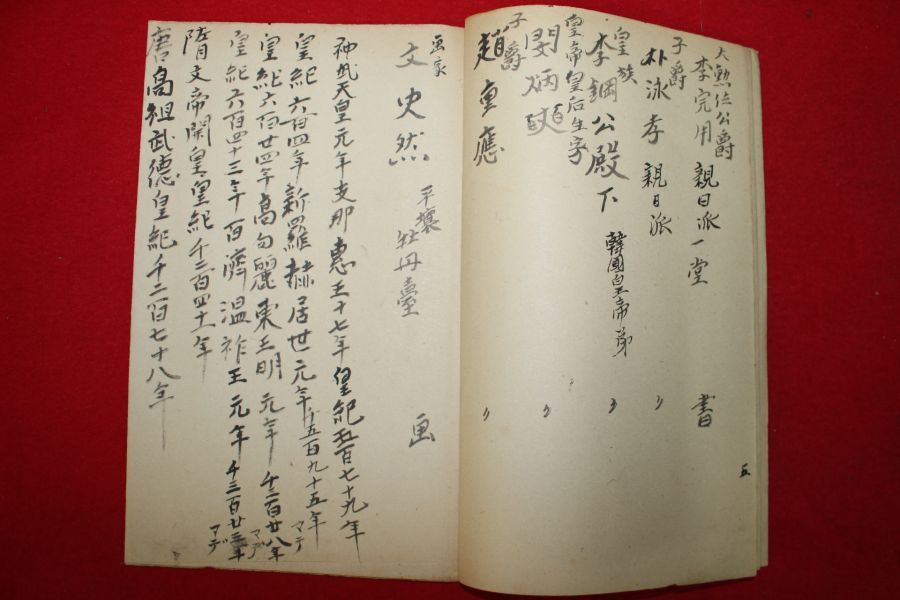 大勲位公爵
李完用 親日派 一堂 書
子爵
朴泳孝 親日派 〃
皇族
李鋼公殿下 韓國皇帝弟 〃
皇帝皇后生家
閔炳奭 〃
子爵
趙重應 〃
五
画家
文史然 平壤牡丹臺 画
神武天皇元年支那惠王十七年皇紀五百七十九年
皇紀六百四年新羅赫居世元年千五百九十五年マデ
皇紀六百廿四年高勾麗東王明元年千三百廿八年マデ
皇紀六百四十三年百濟温祚王元年千三百廿三年マデ
隋文帝開皇皇紀千二百四十一年
唐高祖武德皇紀千二百七十八年